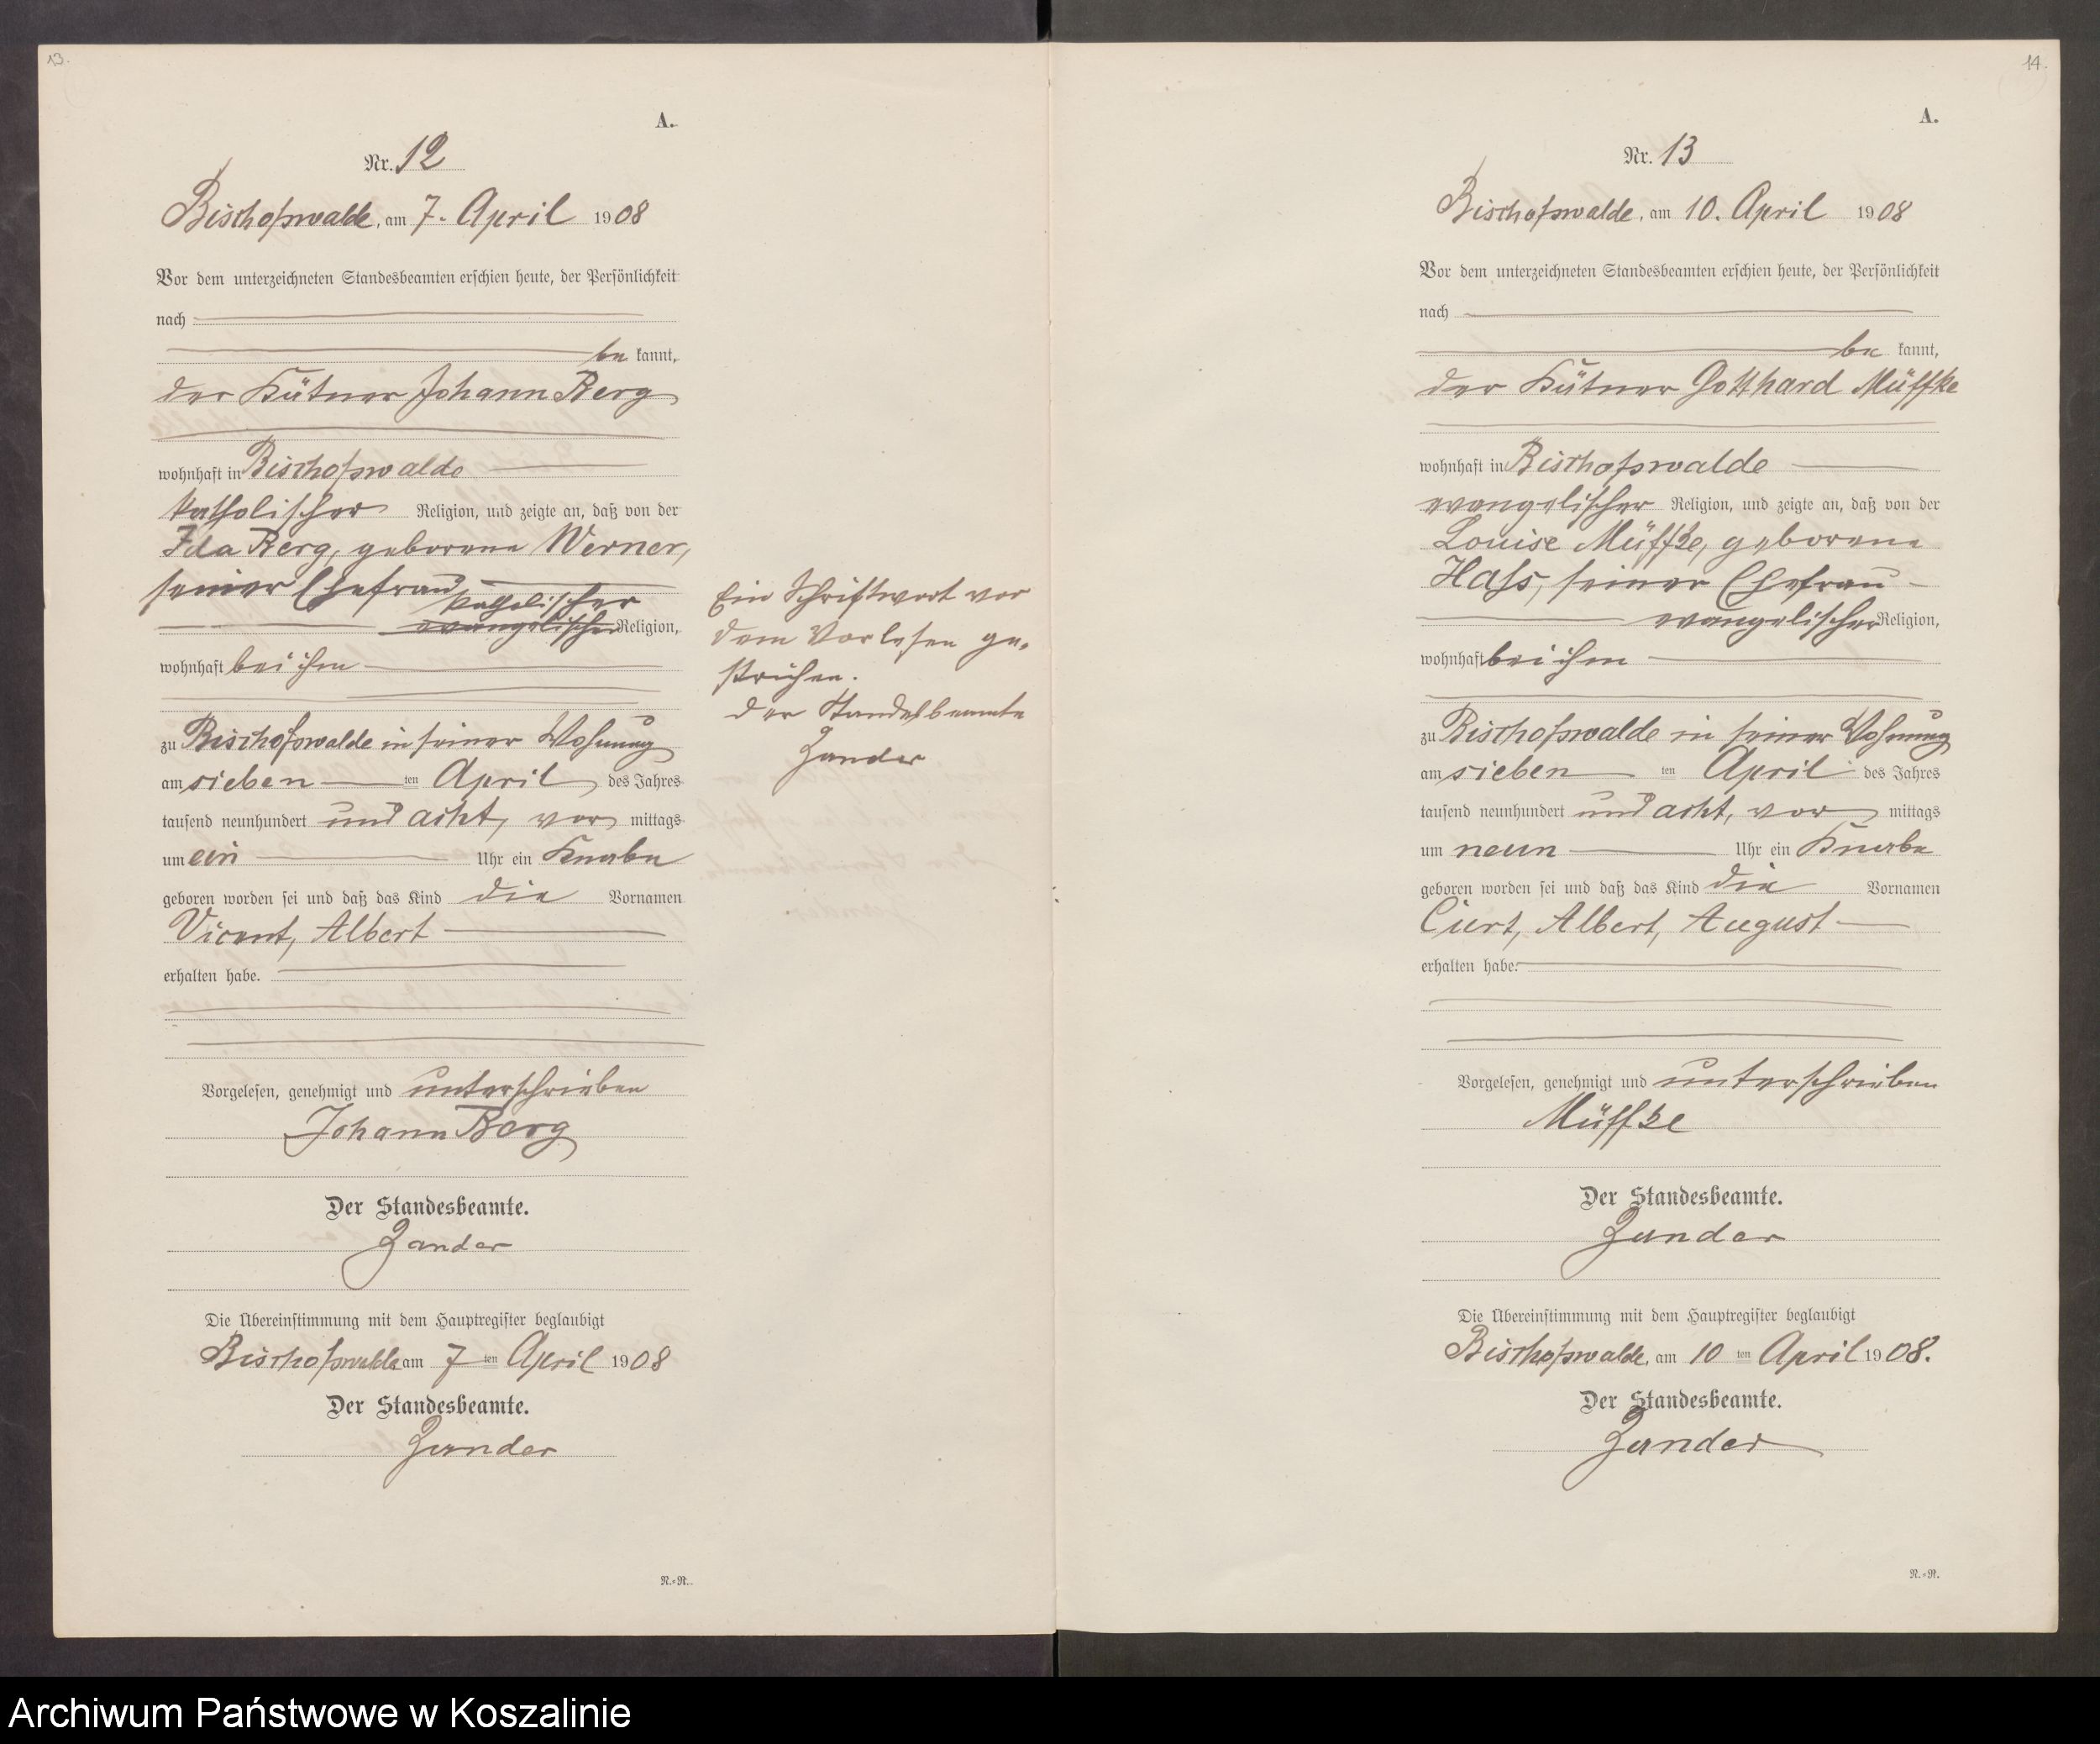 13.
A.
Nr. 12
Bischofswalde, am 7. April 1908
Vor dem unterzeichneten Standesbeamten erschien heute, der Persönlichkeit
nach
be kannt,
der Kütner Johann Berg
wohnhaft in Bischofswalde
katholischer Religion, und zeigte an, daß von der
Ida Berg, geborene Werner,
seiner Ehefrau
katholischer
evangelischer Religion,
wohnhaft bei ihm
zu Bischofswalde in seiner Wohnung
am sieben ten April des Jahres
tausend neunhundert und acht, vor mittags
um ein Uhr ein Knabe
geboren worden sei und daß das Kind die Vornamen
Vicent, Albert
erhalten habe.
Vorgelesen, genehmigt und unterschrieben
Johann Berg
Der Standesbeamte.
Zander
Die Übereinstimmung mit dem Hauptregister beglaubigt
Bischofswalde am 7 ten April 1908
Der Standesbeamte.
Zander
R.=R.
Ein Schriftwort vor
dem Vorlesen ge-
strichen.
Der Standesbeamte
Zander
14.
A.
Nr. 13
Bischofswalde, am 10. April 1908
Vor dem unterzeichneten Standesbeamten erschien heute, der Persönlichkeit
nach
be kannt,
der Kütner Gotthard Müffke
wohnhaft in Bischofswalde
evangelischer Religion, und zeigte an, daß von der
Louise Müffke, geborene
Hass, seiner Ehefrau
evangelischer Religion,
wohnhaft bei ihm
zu Bischofswalde in seiner Wohnung
am sieben ten April des Jahres
tausend neunhundert und acht, vor mittags
um neun Uhr ein Knabe
geboren worden sei und daß das Kind die Vornamen
Curt, Albert, August
erhalten habe.
Vorgelesen, genehmigt und unterschrieben
Müffke
Der Standesbeamte.
Zander
Die Übereinstimmung mit dem Hauptregister beglaubigt
Bischofswalde, am 10 ten April 1908.
Der Standesbeamte.
Zander
R.=R.
Archiwum Państwowe w Koszalinie